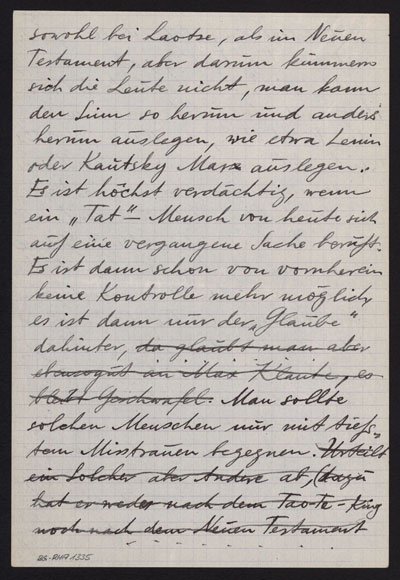 sowohl bei Laotse, als im Neuen
Testament, aber darum kümmern
sich die Leute nicht, man kann
den Sinn so herum und anders
herum auslegen, wie etwa Lenin
oder Kautsky Marx auslegen.
Es ist höchst verdächtig, wenn
ein „Tat“-Mensch von heute sich
auf eine vergangene Sache beruft.
Es ist dann schon von vornherein
keine Kontrolle mehr möglich,
es ist dann nur der „Glaube“
dahinter, da glaubt man aber
ebensogut an Max Klante, es
bleibt Geschwafel. Man sollte
solchen Menschen nur mit tiefs-
tem Misstrauen begegnen. Urteilt
ein Solcher aber Andere ab, (dazu
hat er weder nach dem Taote-King
noch nach dem Neuen Testament
BG-RHA 1335